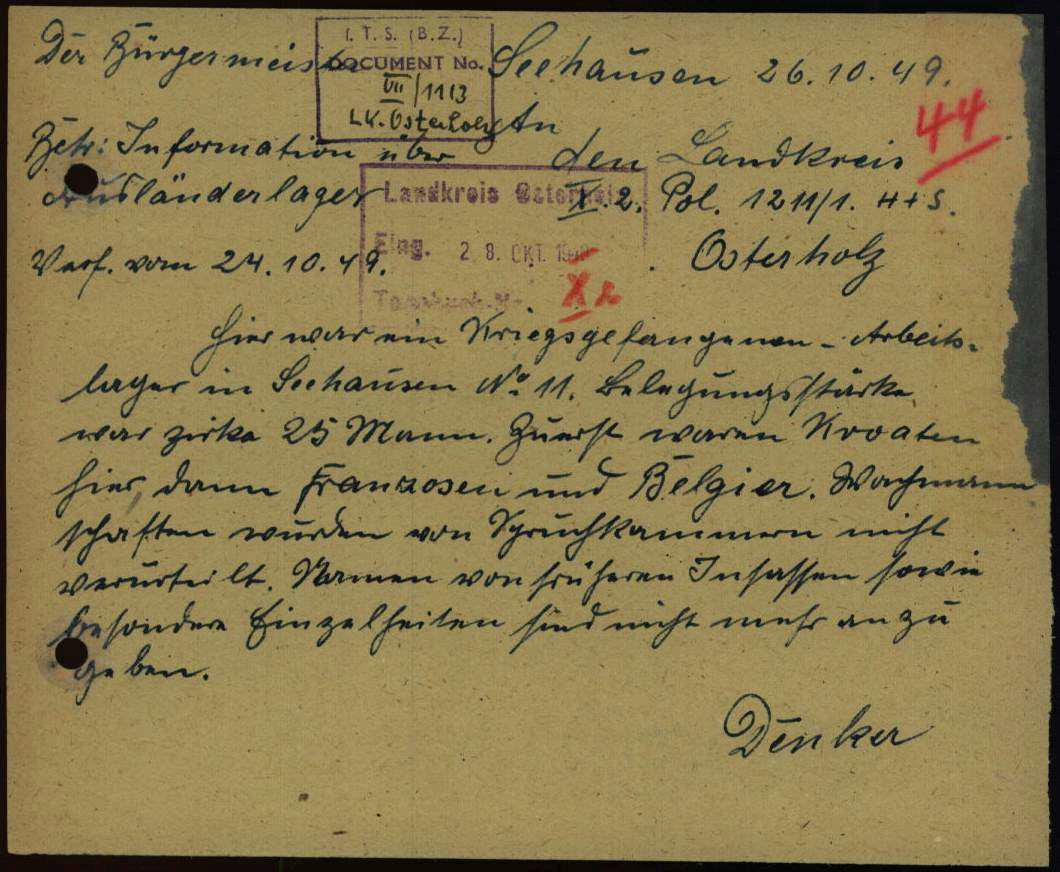 Der Bürgermeister Seehausen 26.10.49.
I.T.S. (B.Z.)
DOCUMENT No.
VII/1113
LK. Osterholz
44
An
Betr: Information über den Landkreis
Ausländerlager X.2. Pol. 1211/1. H+S.
Landkreis Osterholz
Eing. 28. OKT. 1949
X 2
Verf. vom 24.10.49. Osterholz
Hier war ein Kriegsgefangenen-Arbeits-
lager in Seehausen No 11. Belegungsstärke
war zirka 25 Mann. Zuerst waren Kroaten
hier, dann Franzosen und Belgier. Wachmann
schaften wurden von Spruchkammern nicht
verurteilt. Namen von früheren Insassen sowie
besondere Einzelheiten sind nicht mehr an zu
geben.
Denker